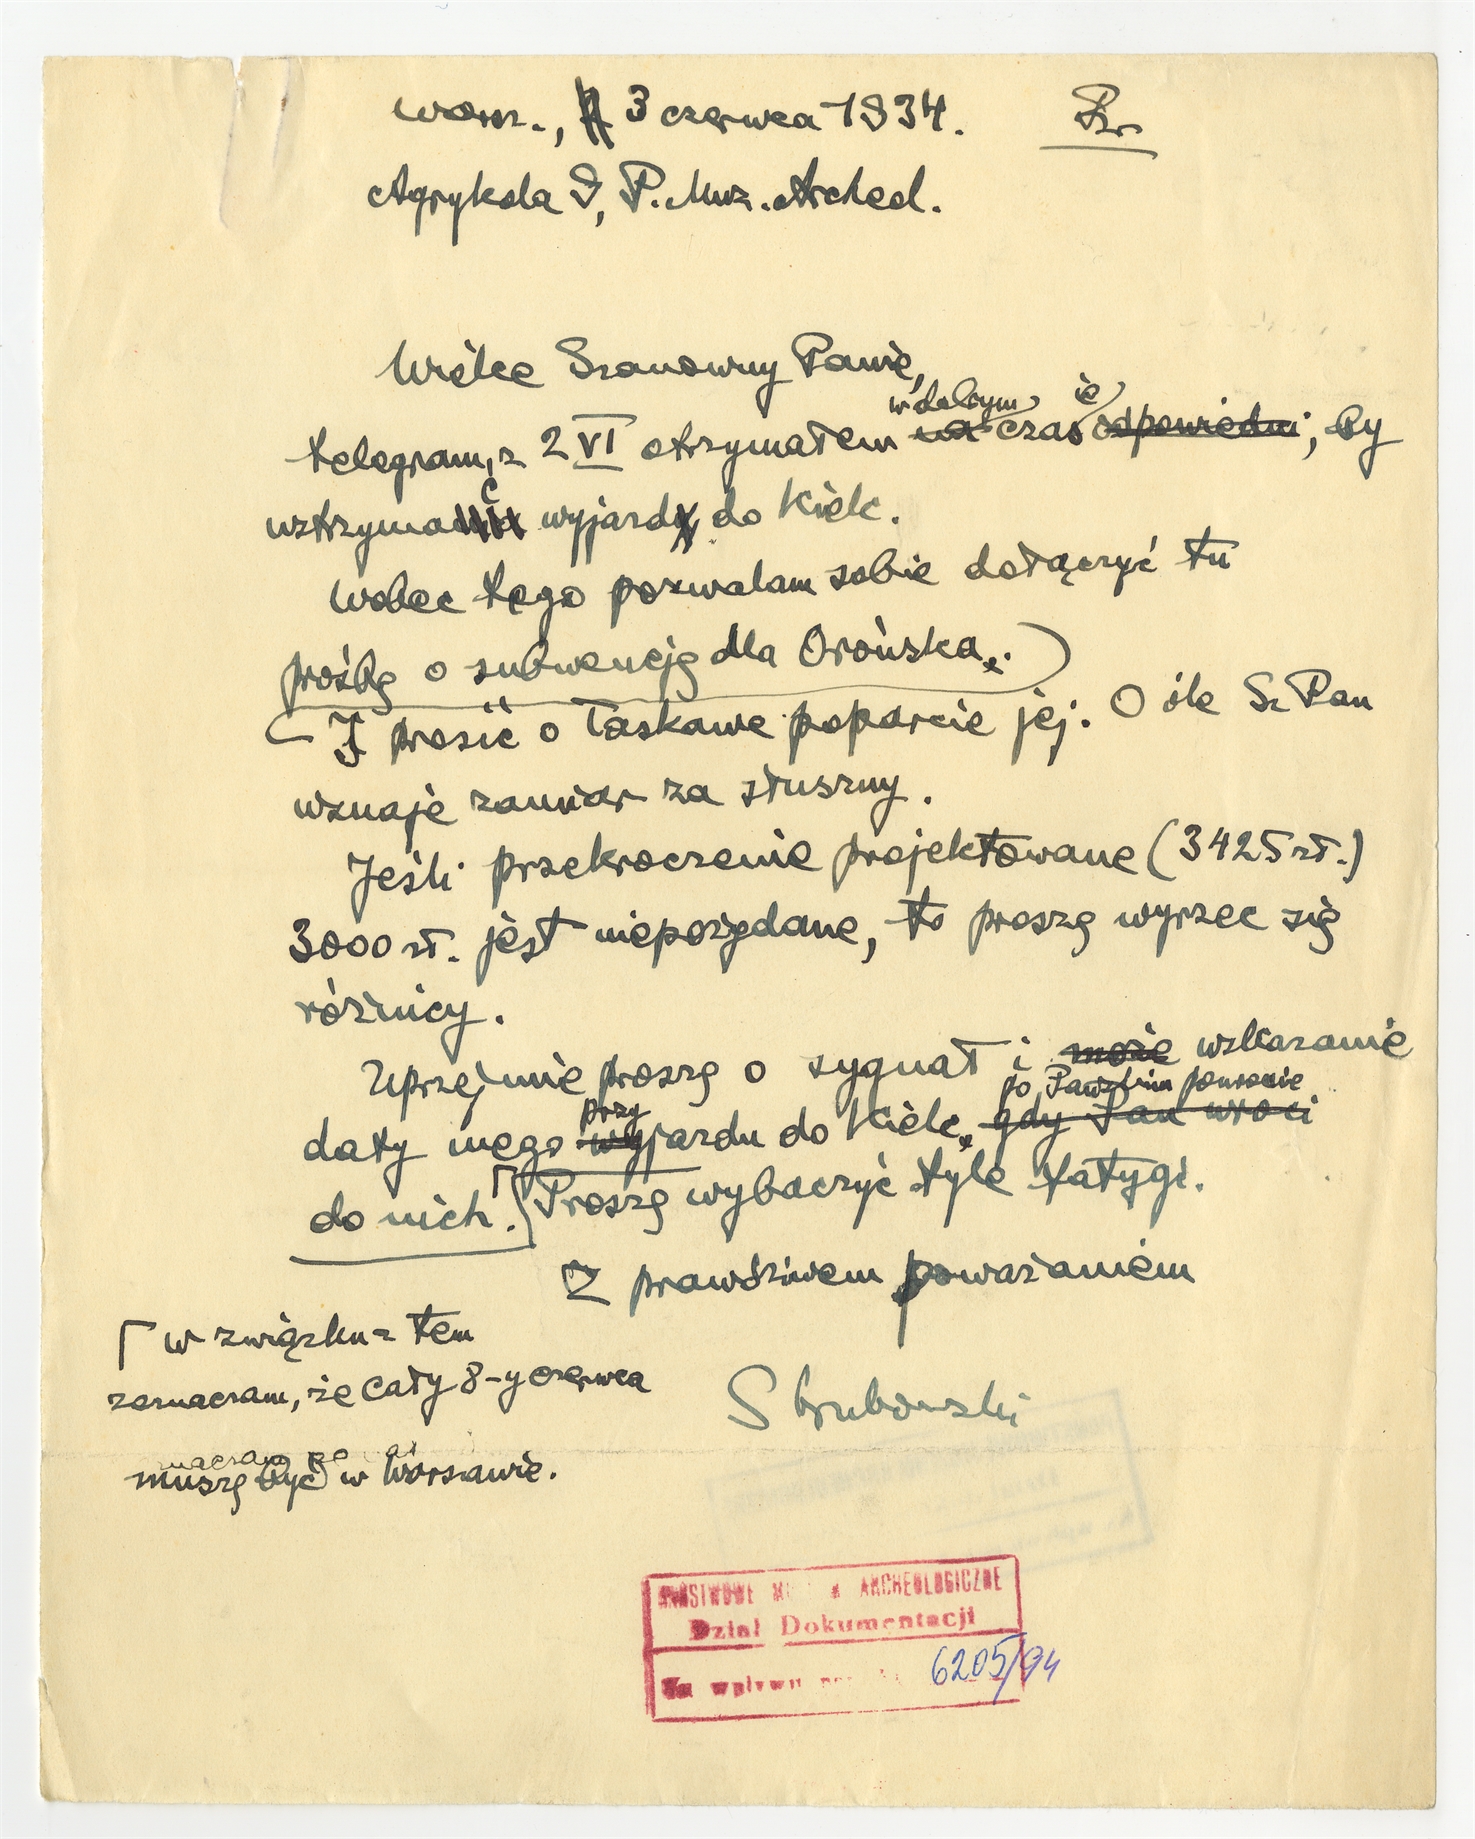 Warsz., 3 czerwca 1934.
Agrykola 9, P. Muz. Archeol.
Wielce Szanowny Panie,
w dobrym ie
telegram z 2 VI otrzymałem na czas odpowiedni, by
wstrzymać wyjazd do Kielc.
Wobec tego pozwalam sobie dołączyć tu
prośbę o subwencję dla Orońska.
I prosić o łaskawe poparcie jej. O ile Sz Pan
uznaje zamiar za słuszny.
Jeśli przekroczenie projektowane (3425 zł.)
3000 zł. jest niepożądane, to proszę wyrzec się
różnicy.
Uprzejmie proszę o sygnał i może wskazanie
po Pańskim powrocie
przy
daty mego wyjazdu do Kielc, gdy Pan wróci
do nich. Proszę wybaczyć tyle fatygi.
Z prawdziwem poważaniem
S Krukowski
w związku z tem
zaznaczam, że cały 8-y czerwca
muszę być w Warszawie.
PAŃSTWOWE ARCHEOLOGICZNE
Dział Dokumentacji
wpływu 6205/94